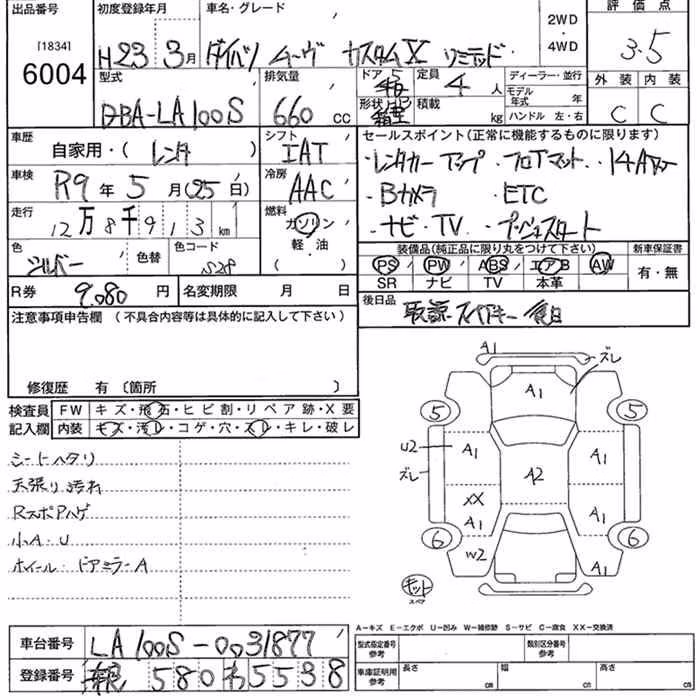 出品番号 初度登録年月 車名・グレード 2WD・4WD 評価点
[1834] 6004 H23 3月 ダイハツ ムーヴ カスタムX リミテッド 3.5
型式 排気量 ドア 5 定員 4人 ディーラー・並行 外装 内装
DBA-LA100S 660 cc 形状 積載 kg モデル年式 年 ハンドル 左・右 C C
車歴 自家用・( レンタ ) シフト IAT セールスポイント(正常に機能するものに限ります)
車検 R9年5月(25日) 冷房 AAC ・レンタカーアップ ・フロアマット ・14AW
・Bカメラ ・ETC
走行 12万8千913km 燃料 ガソリン・軽・油 ( ) ・ナビ・TV ・プッシュスタート
色 シルバー 色替 色コード S28 装備品(純正品に限り丸をつけて下さい) 新車保証書
PS PW ABS エアB AW 有・無
SR ナビ TV 本革
R券 9,080円 名変期限 月 日 後日品 取説 スペアキー 後日
注意事項申告欄 (不具合内容等は具体的に記入して下さい)
修復歴 有(箇所 )
検査員記入欄 FW キズ・飛石・ヒビ割・リペア跡・X要
内装 キズ・汚レ・コゲ・穴・スレ・キレ・破レ
シートヘタリ
天張り汚れ
Rスポアハゲ
小A・U
ホイール・ドアミラーA
A1 ズレ
A1
5 5
U2 A1 A1
ズレ A2
XX
A1 A1
6 6
W2
A1
キット
スペア
A-キズ E-エクボ U-凹み W-補修跡 S-サビ C-腐食 XX-交換済
車台番号 LA100S-0031877 型式指定番号 参考 類別区分番号 参考
登録番号 580わ5538 車庫証明用 参考 長さ cm 幅 cm 高さ cm